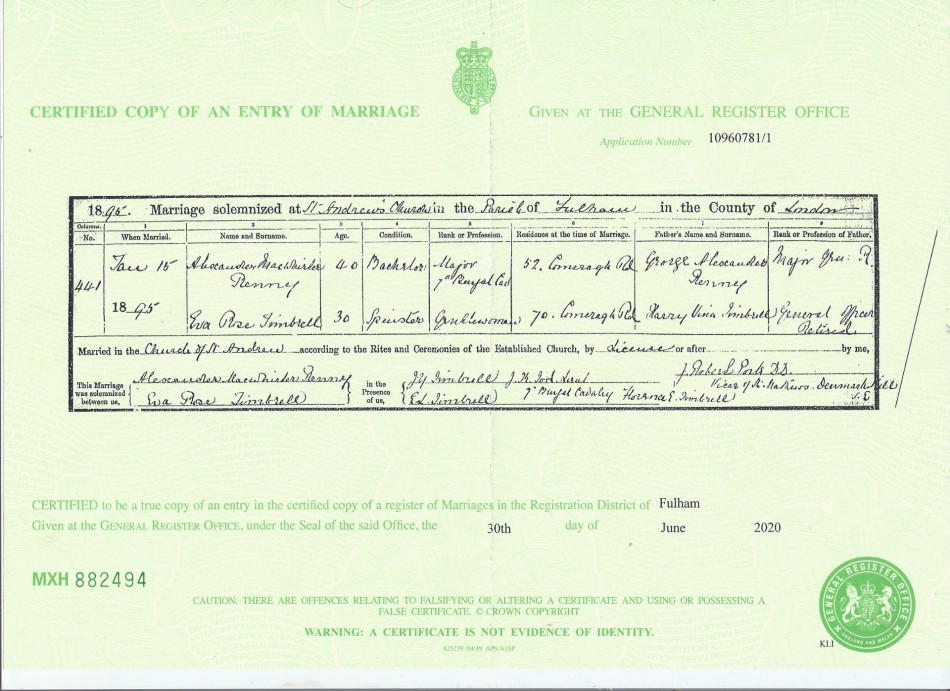 CERTIFIED COPY OF AN ENTRY OF MARRIAGE
GIVEN AT THE GENERAL REGISTER OFFICE
Application Number 10960781/1
1895. Marriage solemnized at St. Andrew's Church in the Parish of Fulham in the County of London
Columns. 1 2 3 4 5 6 7 8
No. When Married. Name and Surname. Age. Condition. Rank or Profession. Residence at the time of Marriage. Father's Name and Surname. Rank or Profession of Father.
441 Jan 15 Alexander MacWhirter Renny 40 Bachelor Major 7th Bengal Cav 52. Comeragh Rd George Alexander Renny Major Gen: R.
1895 Eva Rose Timbrell 30 Spinster Gentlewoman 70. Comeragh Rd Harry Timbrell General Officer Retired
Married in the Church of St Andrew according to the Rites and Ceremonies of the Established Church, by License or after by me,
This Marriage was solemnized between us, Alexander MacWhirter Renny Eva Rose Timbrell in the Presence of us, Timbrell Timbrell 7th Bengal Cavalry Florence E. Timbrell J. Robert D.D. Vicar of Denmark Hill S.E
CERTIFIED to be a true copy of an entry in the certified copy of a register of Marriages in the Registration District of Fulham
Given at the GENERAL REGISTER OFFICE, under the Seal of the said Office, the 30th day of June 2020
MXH 882494
CAUTION: THERE ARE OFFENCES RELATING TO FALSIFYING OR ALTERING A CERTIFICATE AND USING OR POSSESSING A
FALSE CERTIFICATE. © CROWN COPYRIGHT
WARNING: A CERTIFICATE IS NOT EVIDENCE OF IDENTITY.
825239 04/19 APS/A1SP
KLI
GENERAL REGISTER OFFICE
ENGLAND AND WALES